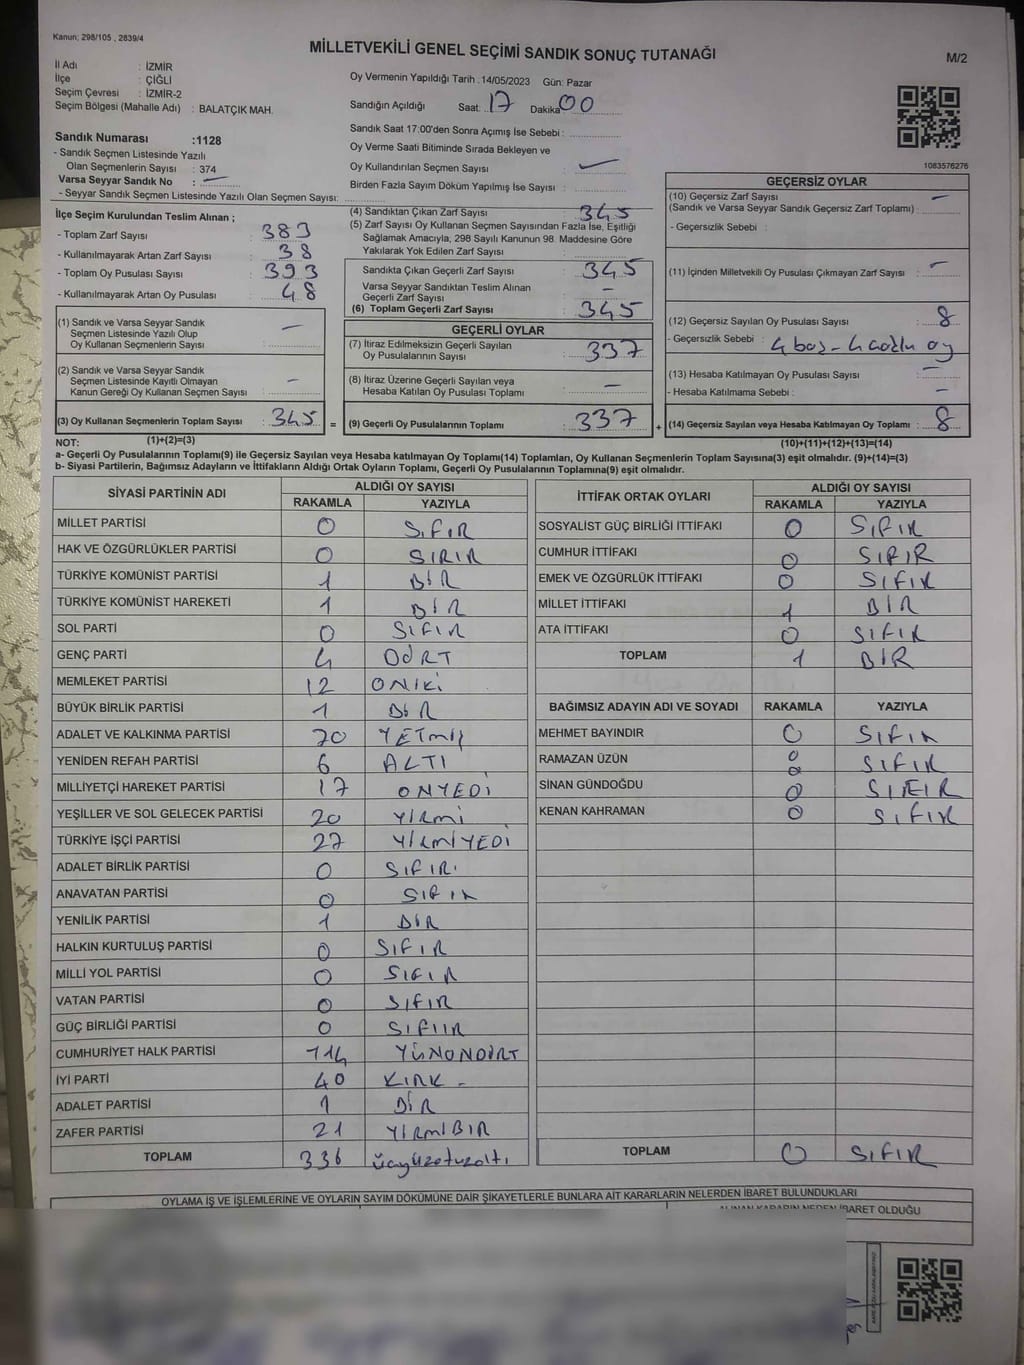 Kanun; 298/105 , 2839/4
MİLLETVEKİLİ GENEL SEÇİMİ SANDIK SONUÇ TUTANAĞI
M/2
İl Adı : İZMİR
İlçe : ÇİĞLİ
Seçim Çevresi : İZMİR-2
Seçim Bölgesi (Mahalle Adı) : BALATÇIK MAH.
Sandık Numarası :1128
- Sandık Seçmen Listesinde Yazılı
Olan Seçmenlerin Sayısı : 374
Varsa Seyyar Sandık No : —
- Seyyar Sandık Seçmen Listesinde Yazılı Olan Seçmen Sayısı:
Oy Vermenin Yapıldığı Tarih :14/05/2023 Gün: Pazar
Sandığın Açıldığı Saat: 17 Dakika 00
Sandık Saat 17:00'den Sonra Açımış İse Sebebi :
Oy Verme Saati Bitiminde Sırada Bekleyen ve
Oy Kullandırılan Seçmen Sayısı : —
Birden Fazla Sayım Döküm Yapılmış İse Sayısı :
1083576276
İlçe Seçim Kurulundan Teslim Alınan ;
- Toplam Zarf Sayısı : 383
- Kullanılmayarak Artan Zarf Sayısı : 38
- Toplam Oy Pusulası Sayısı : 393
- Kullanılmayarak Artan Oy Pusulası : 48
(1) Sandık ve Varsa Seyyar Sandık
Seçmen Listesinde Yazılı Olup
Oy Kullanan Seçmenlerin Sayısı : —
(2) Sandık ve Varsa Seyyar Sandık
Seçmen Listesinde Kayıtlı Olmayan
Kanun Gereği Oy Kullanan Seçmen Sayısı : —
(3) Oy Kullanan Seçmenlerin Toplam Sayısı : 345 =
(4) Sandıktan Çıkan Zarf Sayısı : 345
(5) Zarf Sayısı Oy Kullanan Seçmen Sayısından Fazla İse, Eşitliği
Sağlamak Amacıyla, 298 Sayılı Kanunun 98. Maddesine Göre
Yakılarak Yok Edilen Zarf Sayısı :
Sandıkta Çıkan Geçerli Zarf Sayısı : 345
Varsa Seyyar Sandıktan Teslim Alınan
Geçerli Zarf Sayısı : —
(6) Toplam Geçerli Zarf Sayısı : 345
GEÇERLİ OYLAR
(7) İtiraz Edilmeksizin Geçerli Sayılan
Oy Pusulalarının Sayısı : 337
(8) İtiraz Üzerine Geçerli Sayılan veya
Hesaba Katılan Oy Pusulası Toplamı : —
(9) Geçerli Oy Pusulalarının Toplamı : 337 +
GEÇERSİZ OYLAR
(10) Geçersiz Zarf Sayısı —
(Sandık ve Varsa Seyyar Sandık Geçersiz Zarf Toplamı) :
- Geçersizlik Sebebi :
(11) İçinden Milletvekili Oy Pusulası Çıkmayan Zarf Sayısı : —
(12) Geçersiz Sayılan Oy Pusulası Sayısı : 8
- Geçersizlik Sebebi : 4 boş - 4 oy
(13) Hesaba Katılmayan Oy Pusulası Sayısı : —
- Hesaba Katılmama Sebebi : —
(14) Geçersiz Sayılan veya Hesaba Katılmayan Oy Toplamı : 8
NOT: (1)+(2)=(3)
(10)+(11)+(12)+(13)=(14)
a- Geçerli Oy Pusulalarının Toplamı(9) ile Geçersiz Sayılan veya Hesaba katılmayan Oy Toplamı(14) Toplamları, Oy Kullanan Seçmenlerin Toplam Sayısına(3) eşit olmalıdır. (9)+(14)=(3)
b- Siyasi Partilerin, Bağımsız Adayların ve İttifakların Aldığı Ortak Oyların Toplamı, Geçerli Oy Pusulalarının Toplamına(9) eşit olmalıdır.
SİYASİ PARTİNİN ADI ALDIĞI OY SAYISI
RAKAMLA YAZIYLA
MİLLET PARTİSİ 0 SIFIR
HAK VE ÖZGÜRLÜKLER PARTİSİ 0 SIRIR
TÜRKİYE KOMÜNİST PARTİSİ 1 BİR
TÜRKİYE KOMÜNİST HAREKETİ 1 BİR
SOL PARTİ 0 SIFIR
GENÇ PARTİ 4 DÖRT
MEMLEKET PARTİSİ 12 ONİKİ
BÜYÜK BİRLİK PARTİSİ 1 BİR
ADALET VE KALKINMA PARTİSİ 70 YETMİŞ
YENİDEN REFAH PARTİSİ 6 ALTI
MİLLİYETÇİ HAREKET PARTİSİ 17 ONYEDİ
YEŞİLLER VE SOL GELECEK PARTİSİ 20 YİRMİ
TÜRKİYE İŞÇİ PARTİSİ 27 YİRMİYEDİ
ADALET BİRLİK PARTİSİ 0 SIFIR
ANAVATAN PARTİSİ 0 SIFIR
YENİLİK PARTİSİ 1 BİR
HALKIN KURTULUŞ PARTİSİ 0 SIFIR
MİLLİ YOL PARTİSİ 0 SIFIR
VATAN PARTİSİ 0 SIFIR
GÜÇ BİRLİĞİ PARTİSİ 0 SIFIIR
CUMHURİYET HALK PARTİSİ 114 YÜNONDÖRT
İYİ PARTİ 40 KIRK -
ADALET PARTİSİ 1 BİR
ZAFER PARTİSİ 21 YİRMİBİR
TOPLAM 336 üçyüzotuzaltı
İTTİFAK ORTAK OYLARI ALDIĞI OY SAYISI
RAKAMLA YAZIYLA
SOSYALİST GÜÇ BİRLİĞİ İTTİFAKI 0 SIFIR
CUMHUR İTTİFAKI 0 SIFIR
EMEK VE ÖZGÜRLÜK İTTİFAKI 0 SIFIR
MİLLET İTTİFAKI 1 BİR
ATA İTTİFAKI 0 SIFIR
TOPLAM 1 BİR
BAĞIMSIZ ADAYIN ADI VE SOYADI RAKAMLA YAZIYLA
MEHMET BAYINDIR 0 SIFIR
RAMAZAN ÜZÜN 0 SIFIR
SİNAN GÜNDOĞDU 0 SIFIR
KENAN KAHRAMAN 0 SIFIR
TOPLAM 0 SIFIR
OYLAMA İŞ VE İŞLEMLERİNE VE OYLARIN SAYIM DÖKÜMÜNE DAİR ŞİKAYETLERLE BUNLARA AİT KARARLARIN NELERDEN İBARET BULUNDUKLARI
ALINAN KARARIN NEDEN İBARET OLDUĞU